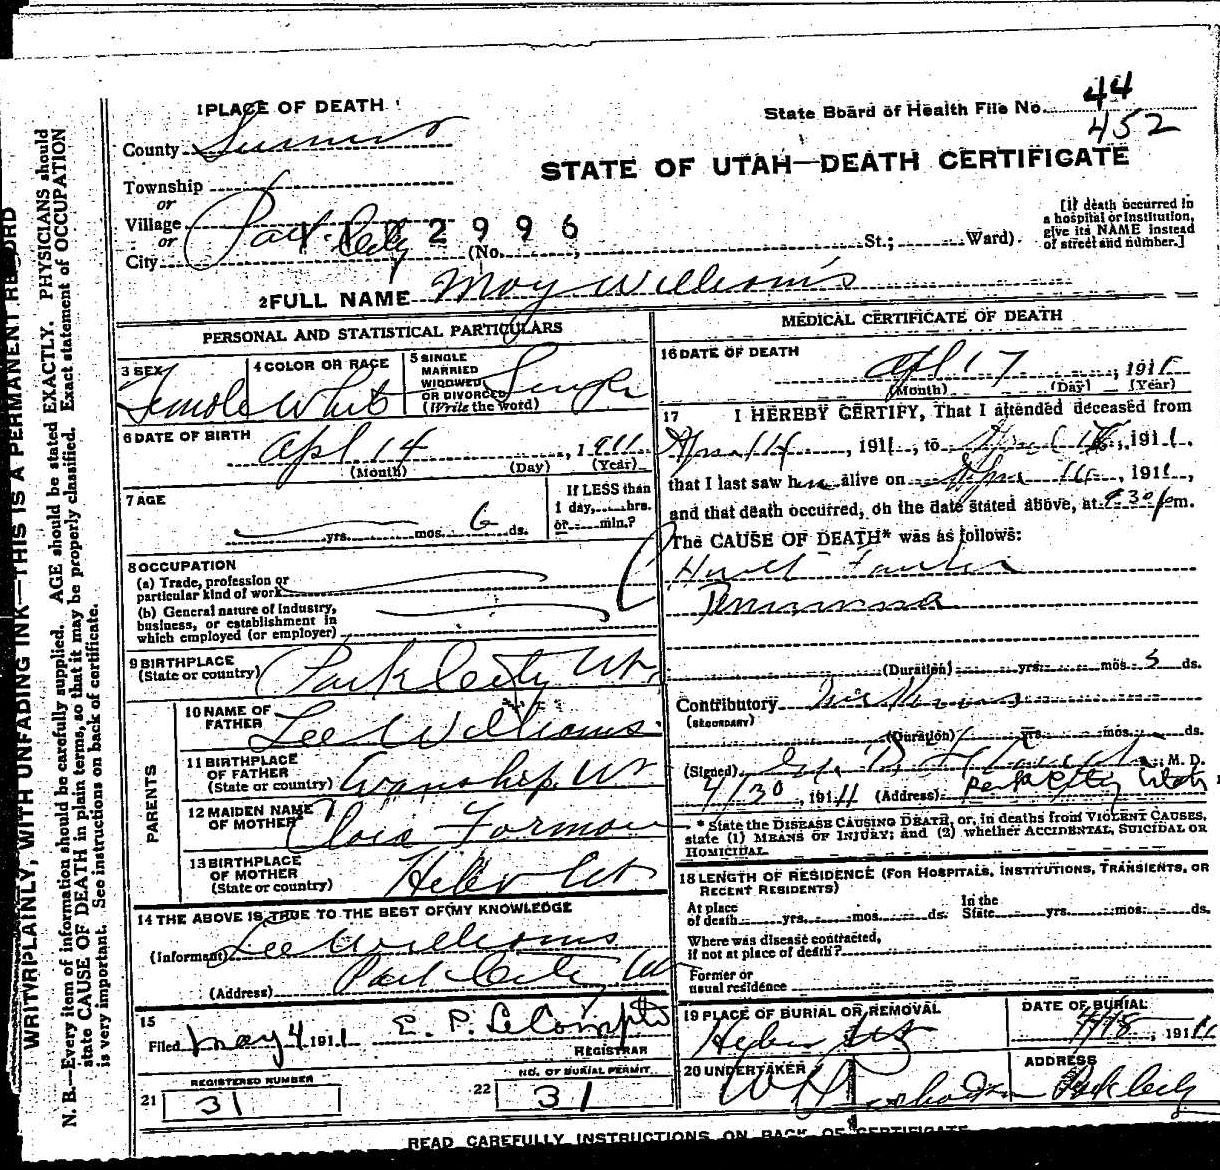 1 PLACE OF DEATH
State Board of Health File No. 44
452
County Summit
STATE OF UTAH—DEATH CERTIFICATE
Township
or
Village
or
City Park City
1102996
(No. St.; Ward)
[If death occurred in a hospital or institution, give its NAME instead of street and number.]
2 FULL NAME May Williams
PERSONAL AND STATISTICAL PARTICULARS
3 SEX Female
4 COLOR OR RACE White
5 SINGLE MARRIED WIDOWED OR DIVORCED (Write the word) Single
6 DATE OF BIRTH Apl 14, 1911
(Month) (Day) (Year)
7 AGE yrs. mos. 6 ds.
If LESS than 1 day, hrs. or min.?
8 OCCUPATION
(a) Trade, profession or particular kind of work
(b) General nature of industry, business, or establishment in which employed (or employer)
9 BIRTHPLACE (State or country) Park City Ut.
PARENTS
10 NAME OF FATHER Lee Williams
11 BIRTHPLACE OF FATHER (State or country) Wanship Ut
12 MAIDEN NAME OF MOTHER Forman
13 BIRTHPLACE OF MOTHER (State or country) Heber Ut
14 THE ABOVE IS TRUE TO THE BEST OF MY KNOWLEDGE
(Informant) Lee Williams
(Address) Park City Ut
15
Filed May 4 1911 E. P. LeCompte
REGISTRAR
REGISTERED NUMBER
21 31
NO. OF BURIAL PERMIT
22 31
MEDICAL CERTIFICATE OF DEATH
16 DATE OF DEATH
Apl 17, 1911
(Month) (Day) (Year)
17 I HEREBY CERTIFY, That I attended deceased from
1911, to , 1911,
that I last saw her alive on , 1911,
and that death occurred, on the date stated above, at 9 30 p m.
The CAUSE OF DEATH* was as follows:
(Duration) yrs. mos. 5 ds.
Contributory
(SECONDARY)
(Duration) yrs. mos. ds.
(Signed) M. D.
4/30, 1911 (Address) Park City Utah
* State the DISEASE CAUSING DEATH, or, in deaths from VIOLENT CAUSES, state (1) MEANS OF INJURY; and (2) whether ACCIDENTAL, SUICIDAL OR HOMICIDAL.
18 LENGTH OF RESIDENCE (FOR HOSPITALS, INSTITUTIONS, TRANSIENTS, OR RECENT RESIDENTS)
At place of death yrs. mos. ds. In the State yrs. mos. ds.
Where was disease contracted, if not at place of death?
Former or usual residence
19 PLACE OF BURIAL OR REMOVAL Heber City
DATE OF BURIAL 4/18, 1911
20 UNDERTAKER
ADDRESS Park City
READ CAREFULLY INSTRUCTIONS ON BACK OF CERTIFICATE
WRITE PLAINLY, WITH UNFADING INK—THIS IS A PERMANENT RECORD
N. B.—Every item of information should be carefully supplied. AGE should be stated EXACTLY. PHYSICIANS should
state CAUSE OF DEATH in plain terms, so that it may be properly classified. Exact statement of OCCUPATION
is very important. See instructions on back of certificate.